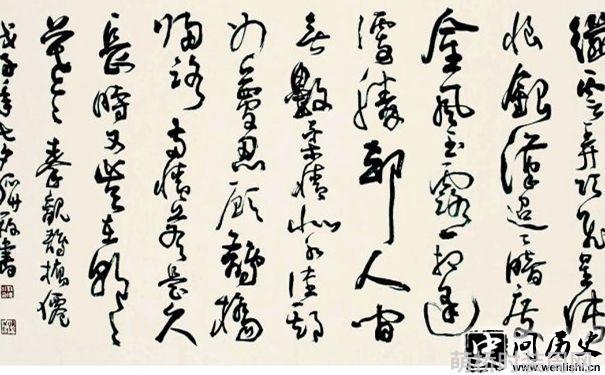 纖雲弄巧飛星傳
恨銀漢迢々暗度
金風玉露一相逢
便勝却人間
無數柔情似水佳期
如夢忍顧鵲橋
歸路兩情若是久
長時又豈在朝々
暮々秦觀鵲橋僊
戊子年七夕書
问历史
www.wenlishi.com